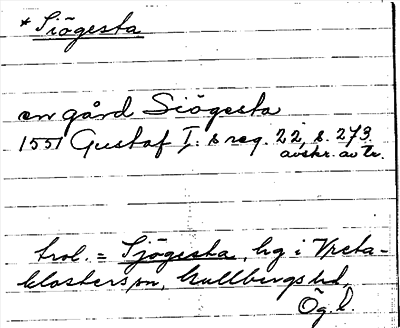 * Siögesta
en gård Siögesta
1551 Gustaf I:s reg. 22, s. 273.
avskr. av tr.
trol. = Sjögesta, hg i Vreta-
klosters sn, Gullbergs hd,
Ög. l.